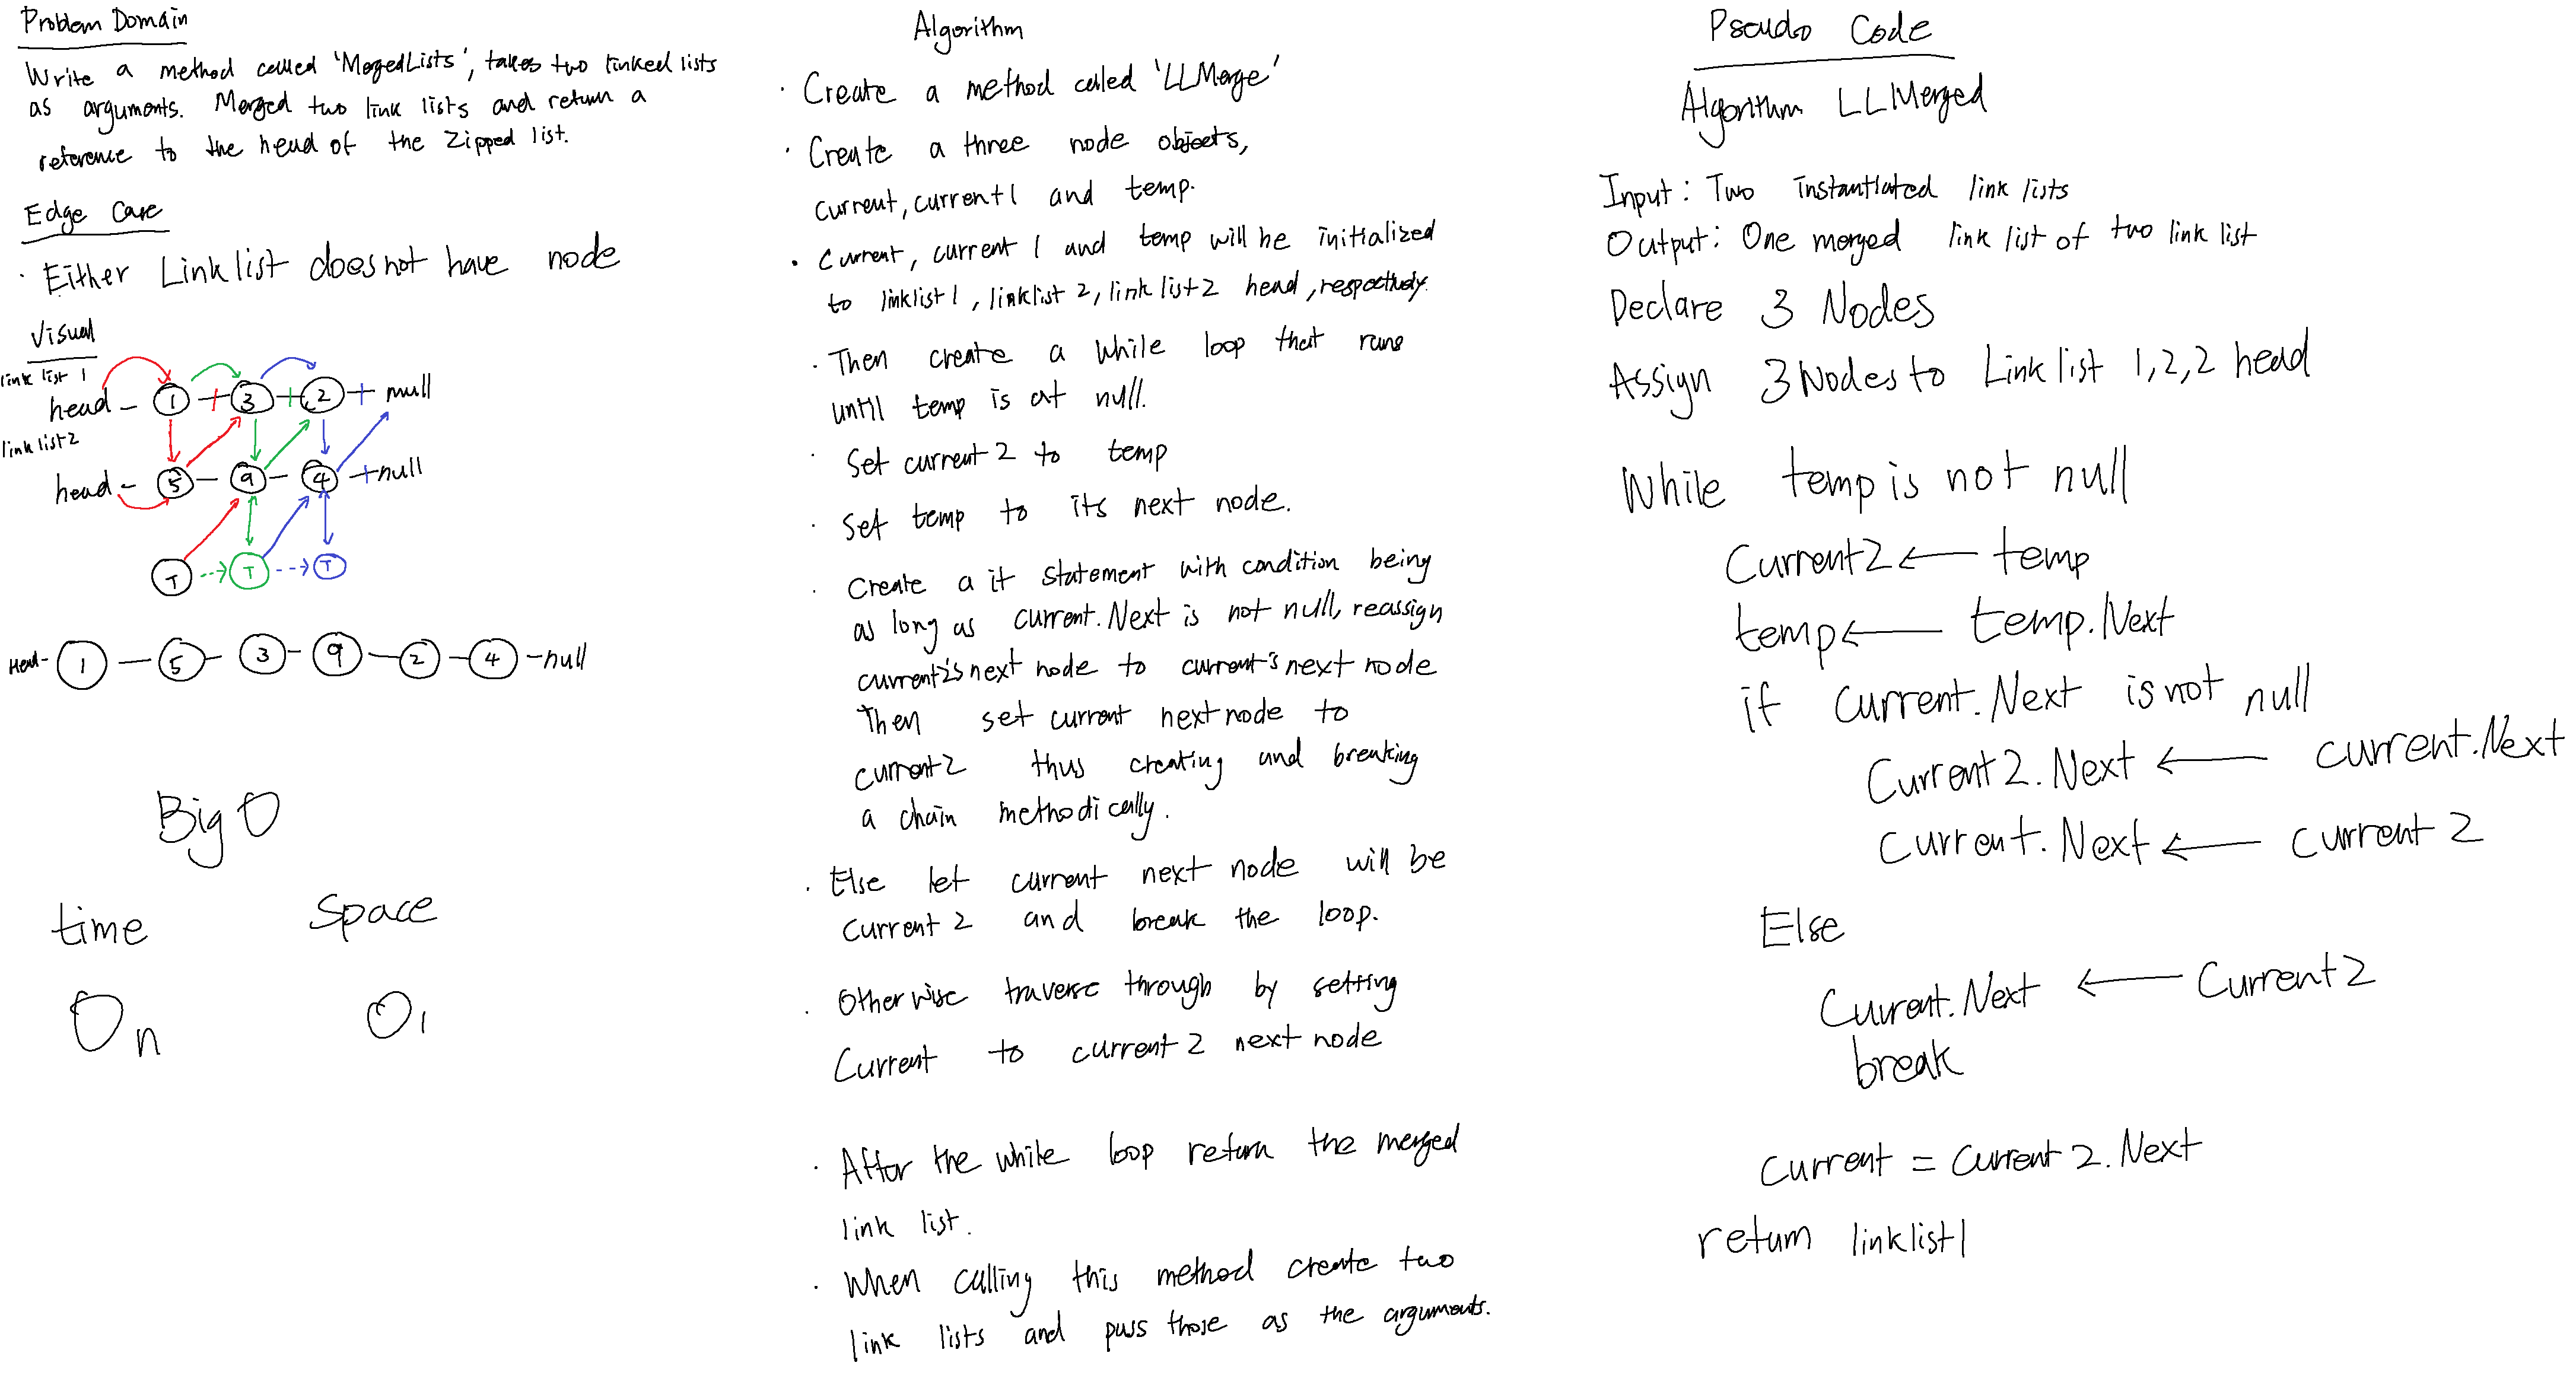 Problem Domain
Write a method called 'MergedLists', takes two linked lists
as arguments. Merged two link lists and return a
reference to the head of the Zipped list.
Edge Case
· Either Link list does not have node
Visual
link list 1
head - 1 + 3 + 2 + null
link list 2
head - 5 - 9 - 4 - + null
T T T
Head - 1 - 5 - 3 - 9 - 2 - 4 - null
Big O
time space
O n O 1
Algorithm
· Create a method called 'LLMerge'
· Create a three node objects,
current, current1 and temp.
· Current, current 1 and temp will be initialized
to linklist1, linklist 2, link list2 head, respectively.
· Then create a while loop that runs
until temp is at null.
· Set current2 to temp
· Set temp to its next node.
· Create a if statement with condition being
as long as current.Next is not null, reassign
current2's next node to current's next node
Then set current next node to
current2 thus creating and breaking
a chain methodically.
· Else let current next node will be
current 2 and break the loop.
· Otherwise traverse through by setting
Current to current 2 next node
· After the while loop return the merged
link list.
· When calling this method create two
link lists and pass those as the arguments.
Pseudo Code
Algorithm LLMerged
Input: Two instantiated link lists
Output: One merged link list of two link list
Declare 3 Nodes
Assign 3 Nodes to Link list 1,2,2 head
While temp is not null
Current2 ← temp
temp ← temp.Next
if current.Next is not null
Current2.Next ← current.Next
Current.Next ← current 2
Else
Current.Next ← Current2
break
Current = Current 2.Next
return linklist1